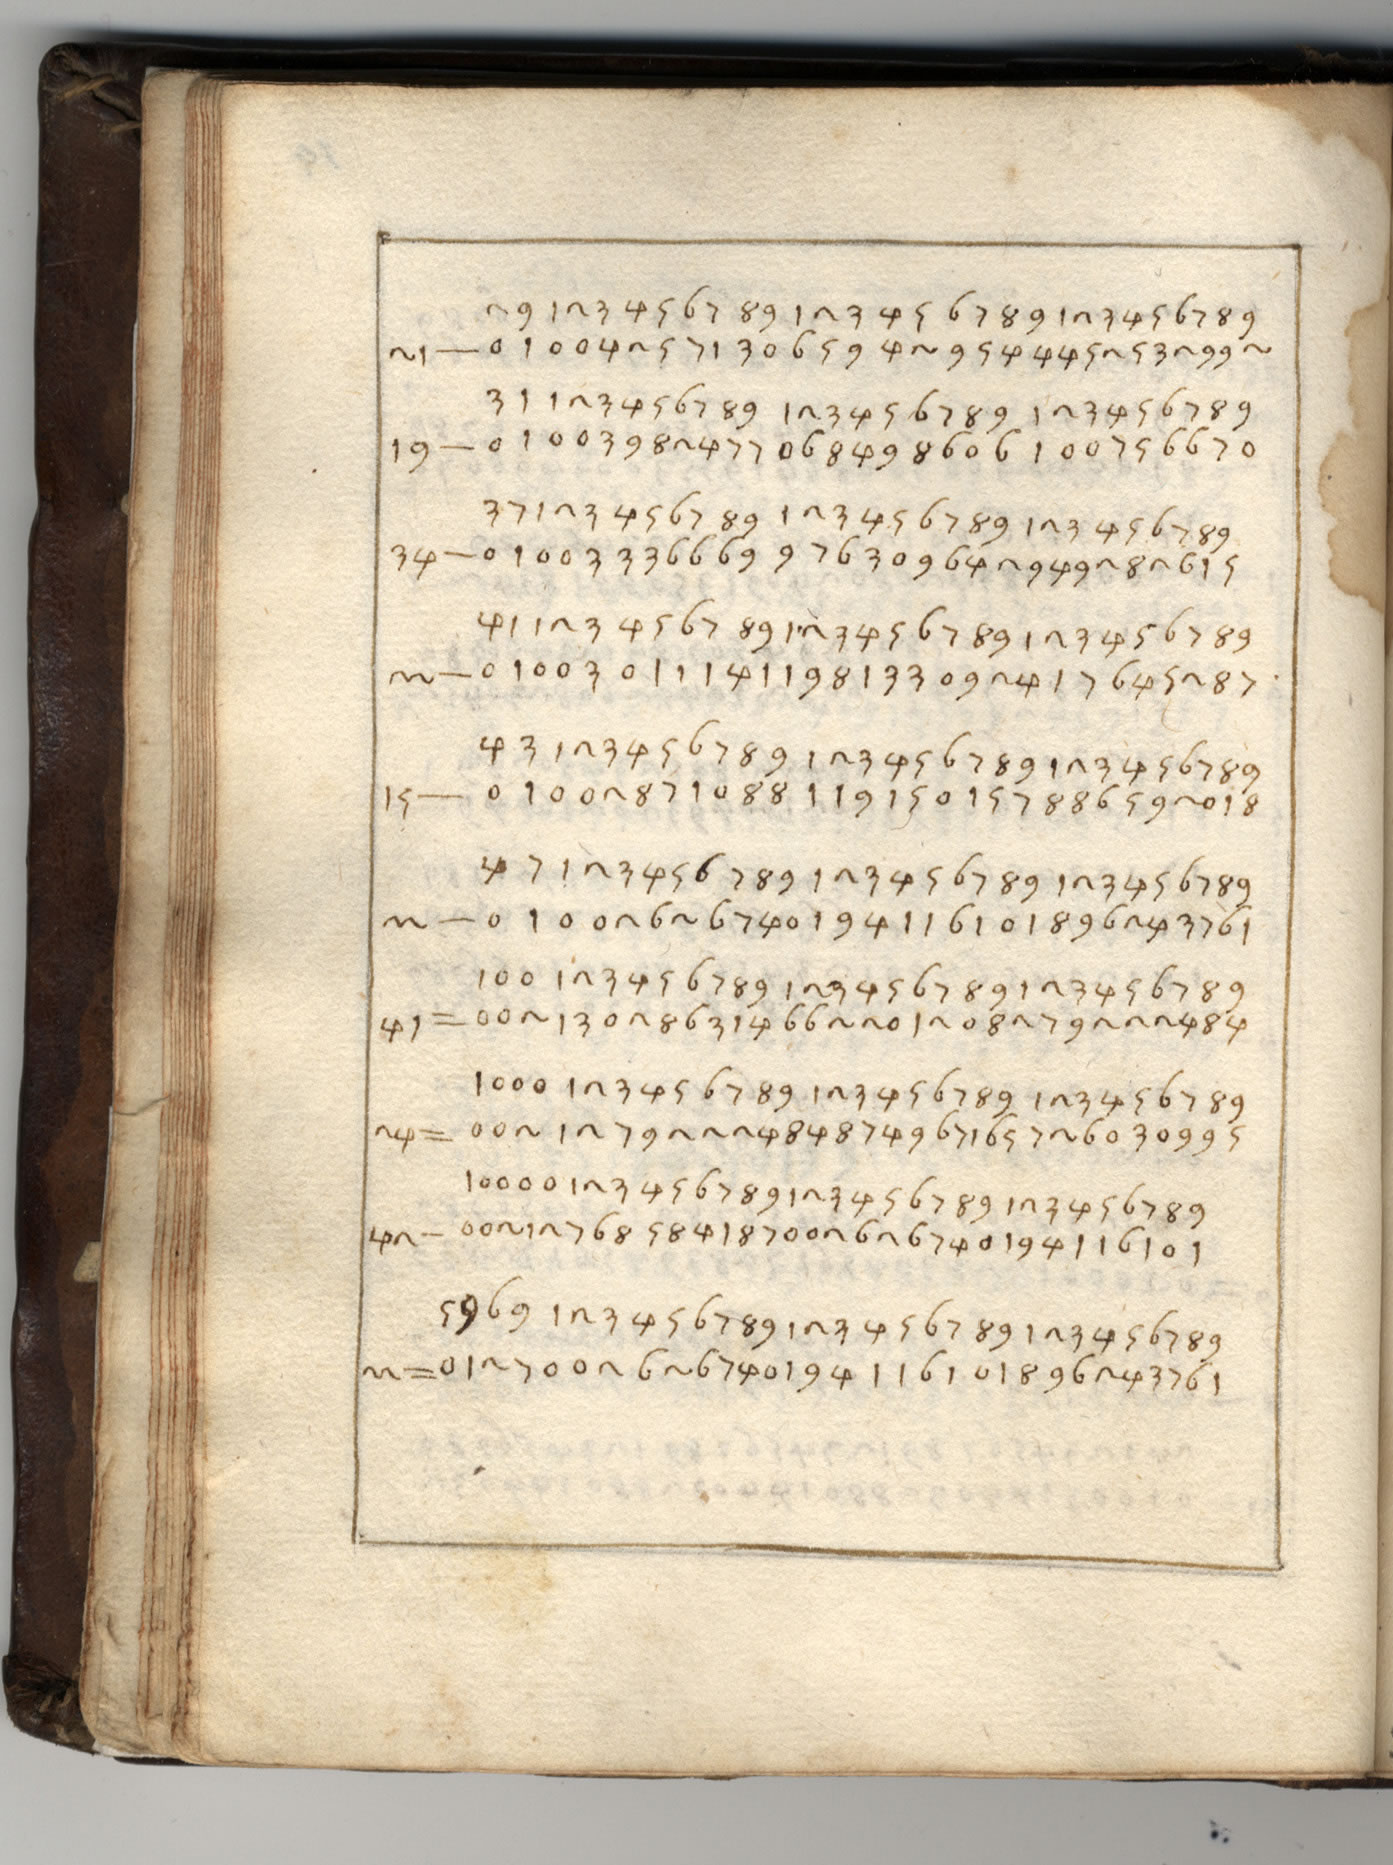 29 123456789 123456789 123456789
21—01004257130659429544452532992
31 123456789 123456789 123456789
19—01003982477068498606100756670
37 123456789 123456789 123456789
34—01003336669976309642949282615
41 123456789 123456789 123456789
22—01003011141198133092417645287
43 123456789 123456789 123456789
15—01002871088119150157886592018
47 123456789 123456789 123456789
22—01002626740194116101896243761
100 123456789 123456789 123456789
41=002130286314662201208279222484
1000 123456789 123456789 123456789
24=0021279222484874967165726030995
10000 123456789 123456789 123456789
42—00212768584187002626740194116101
5969 123456789 123456789 123456789
22=0127002626740194116101896243761